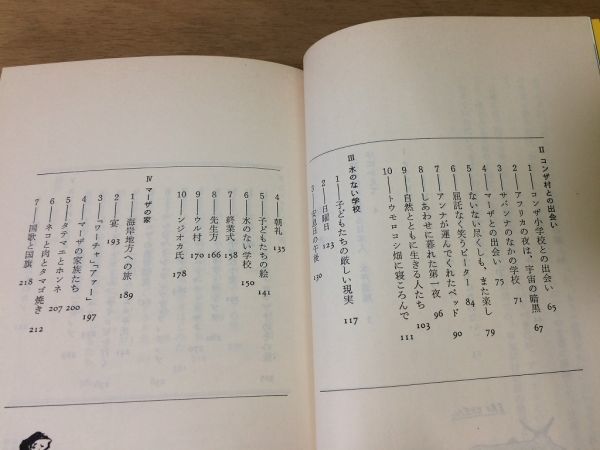 II コンザ村との出会い
1——コンザ小学校との出会い 65
2——アフリカの夜は、宇宙の暗黒 67
3——サバンナのなかの学校 71
4——マーザとの出会い 75
5——ないない尽くしも、また楽し 79
6——屈託なく笑うピーター 84
7——アンナが運んでくれたベッド 90
8——しあわせに暮れた第一夜 96
9——自然とともに生きる人たち 103
10——トウモロコシ畑に寝ころんで 111
III 水のない学校
1——子どもたちの厳しい現実 117
2——日曜日 123
3——安息日の午後 130
4——朝礼 135
5——子どもたちの絵 141
6——水のない学校 150
7——終業式 158
8——先生方 166
9——ウル村 170
10——ンジオカ氏 178
IV マーザの家
1——海岸地方への旅 189
2——宴 193
3——「ワーチャ」「アァー」 197
4——マーザの家族たち 200
5——タテマエとホンネ 207
6——ネコと肉とタマゴ焼き 212
7——国歌と国旗 218